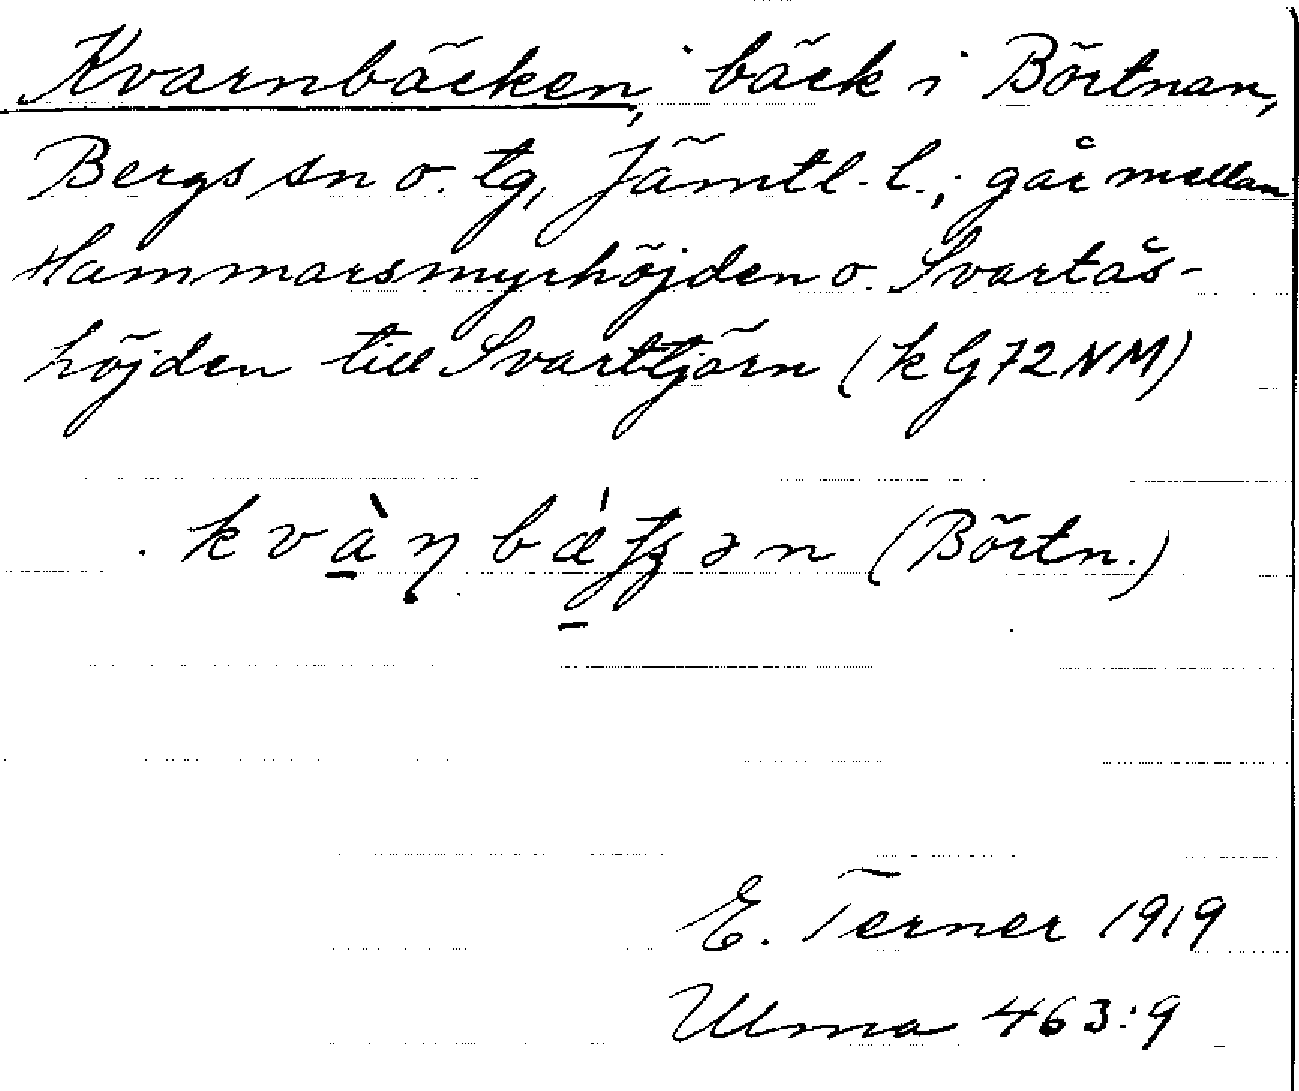 Kvarnbäcken, bäck i Börtnan,
Bergs sn o. tg, Jämtl. l.; går mellan
Hammarsmyrhöjden o. Svartås-
höjden till Svarttjörn (k G72NM)
(Börtn.)
E. Terner 1919
Ulma 463:9